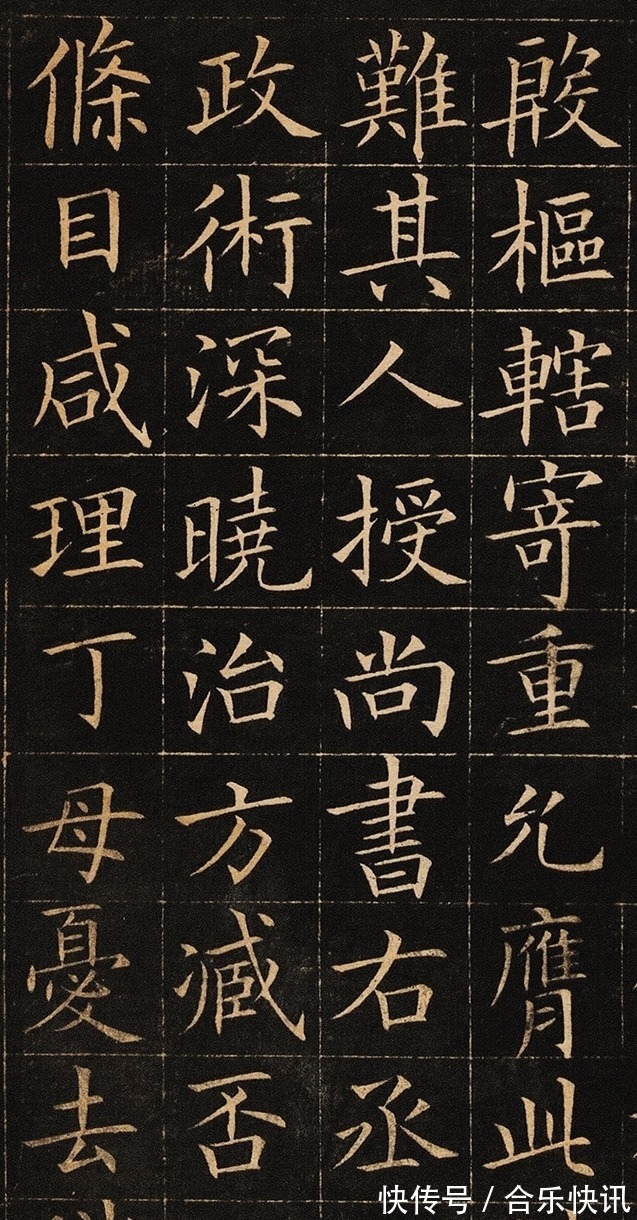 殿樞轄寄重允膺此
難其人授尚書右丞
政術深曉治方臧否
條目咸理丁母憂去
快传号 / 合乐快讯